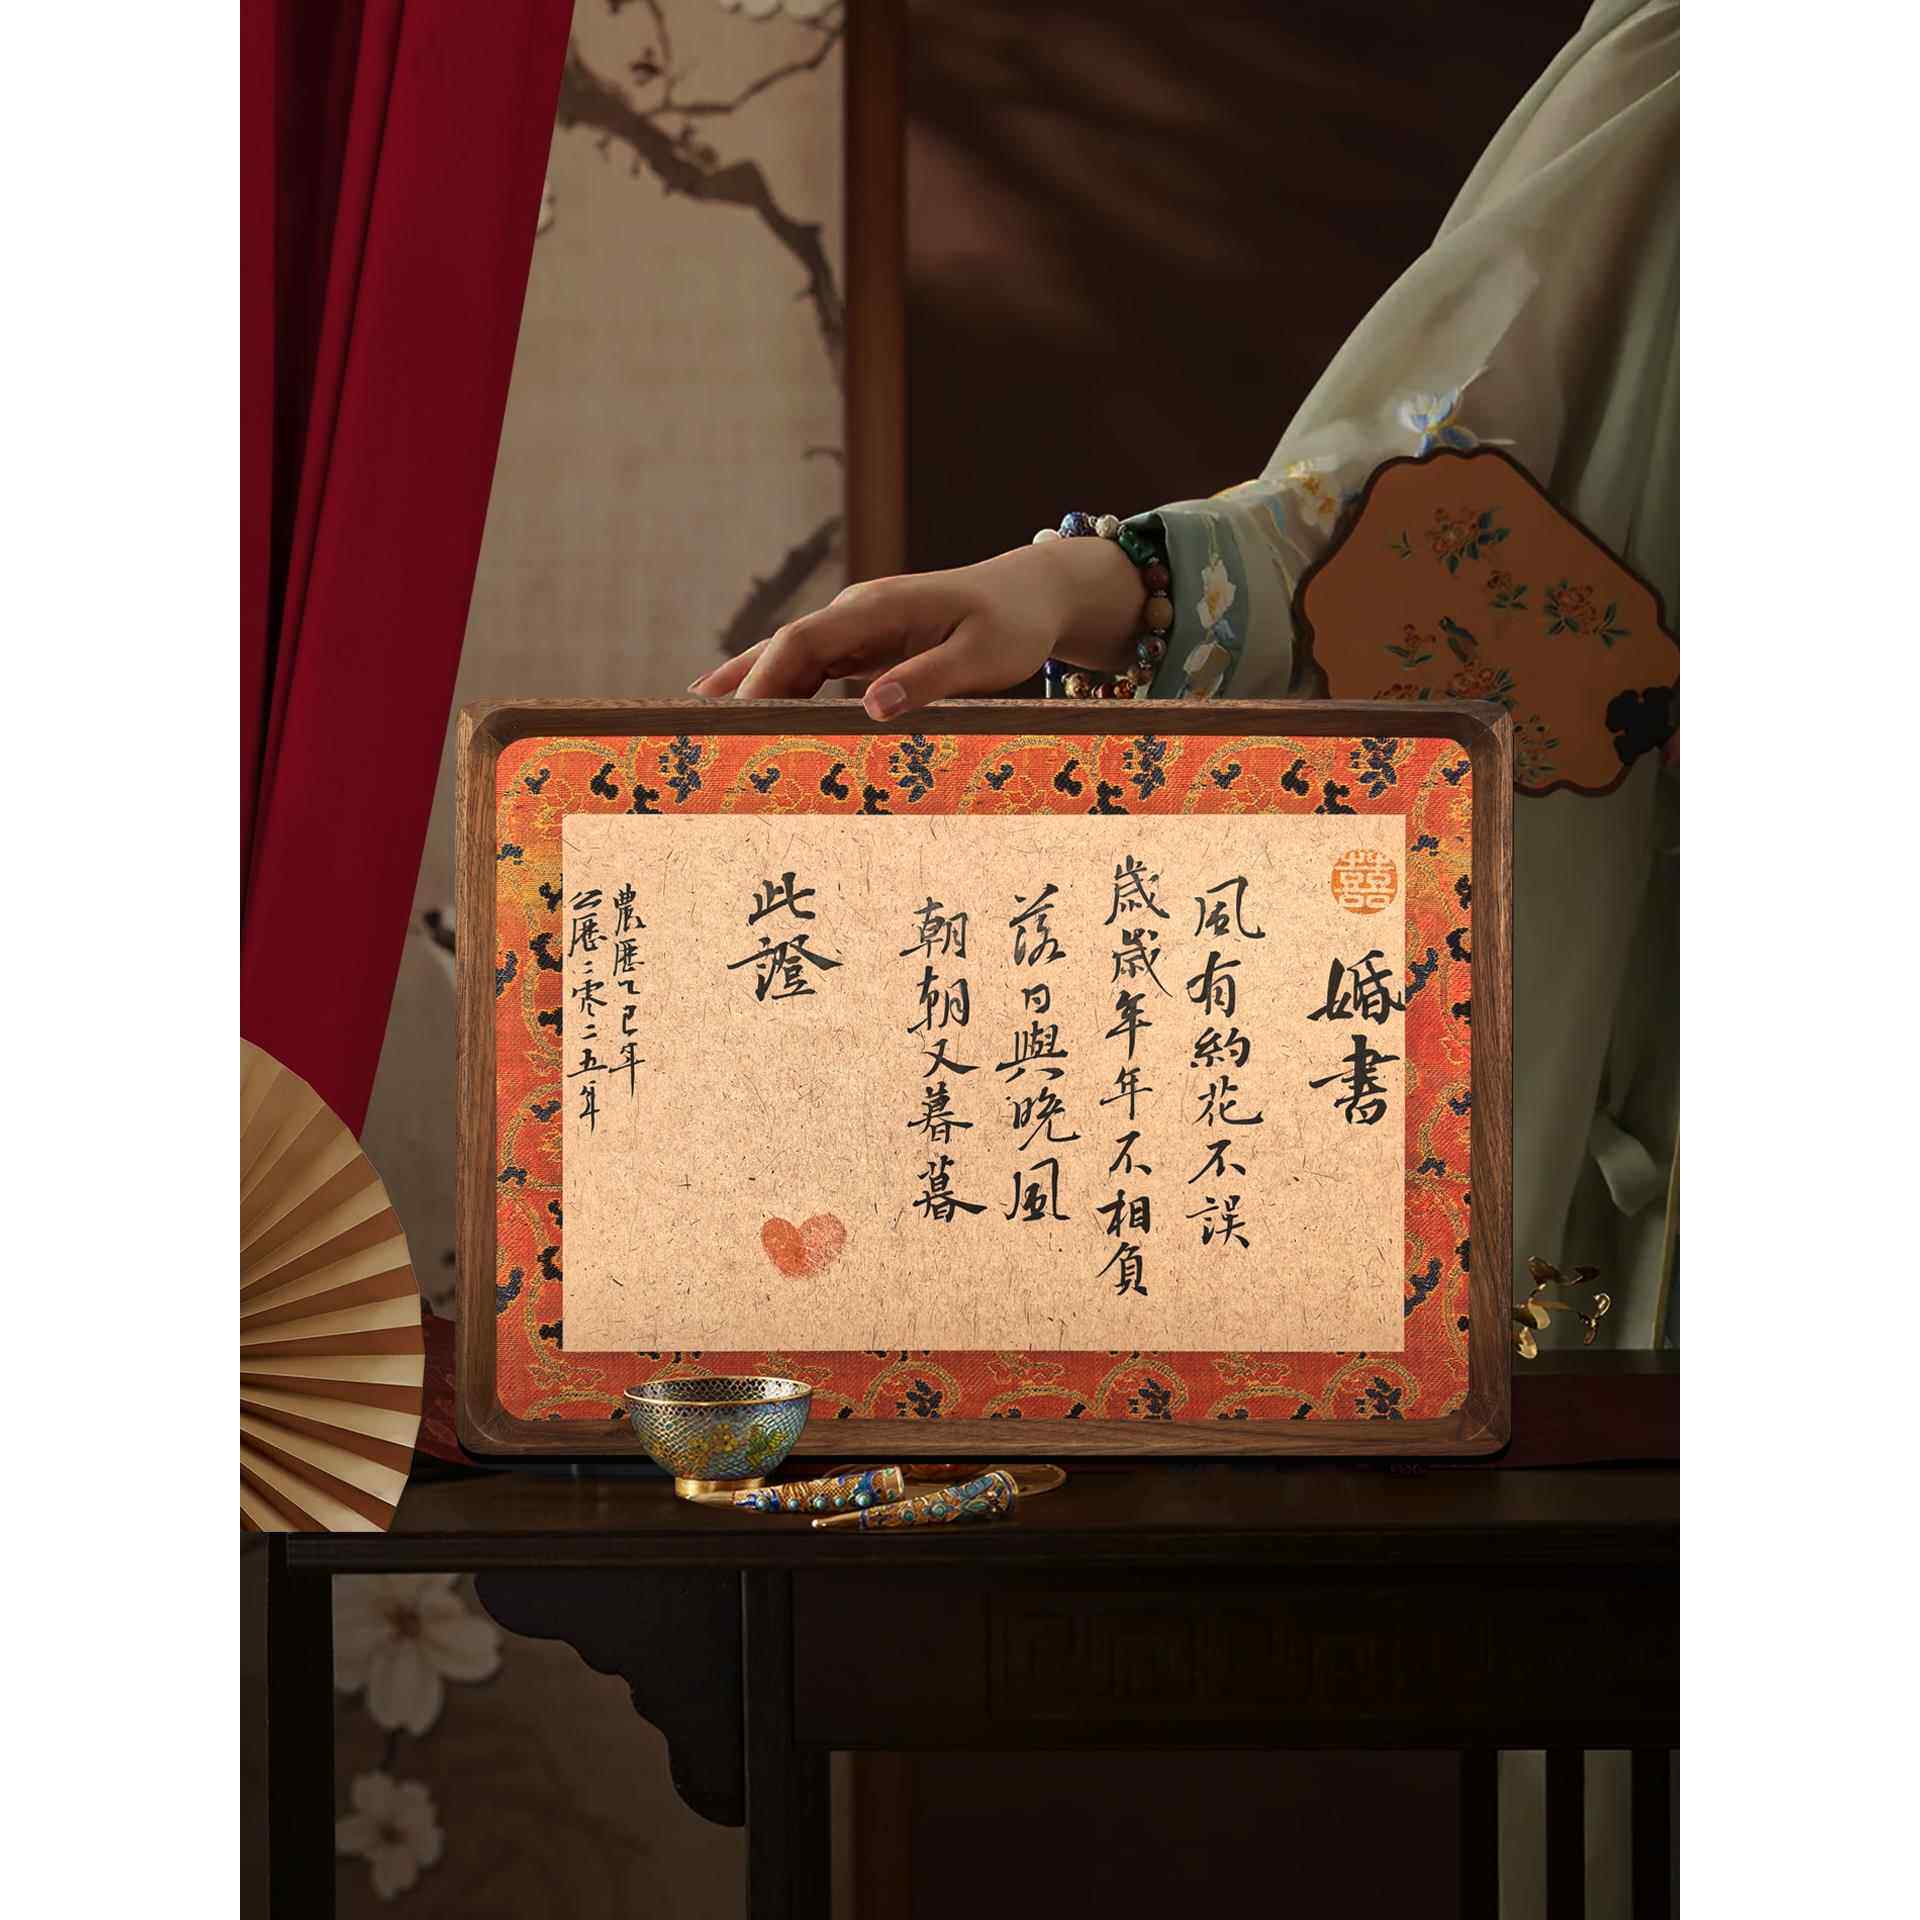 囍
婚書
風有約花不誤
歲歲年年不相負
落日與晚風
朝朝又暮暮
此證
農歷乙巳年
公歷二零二五年